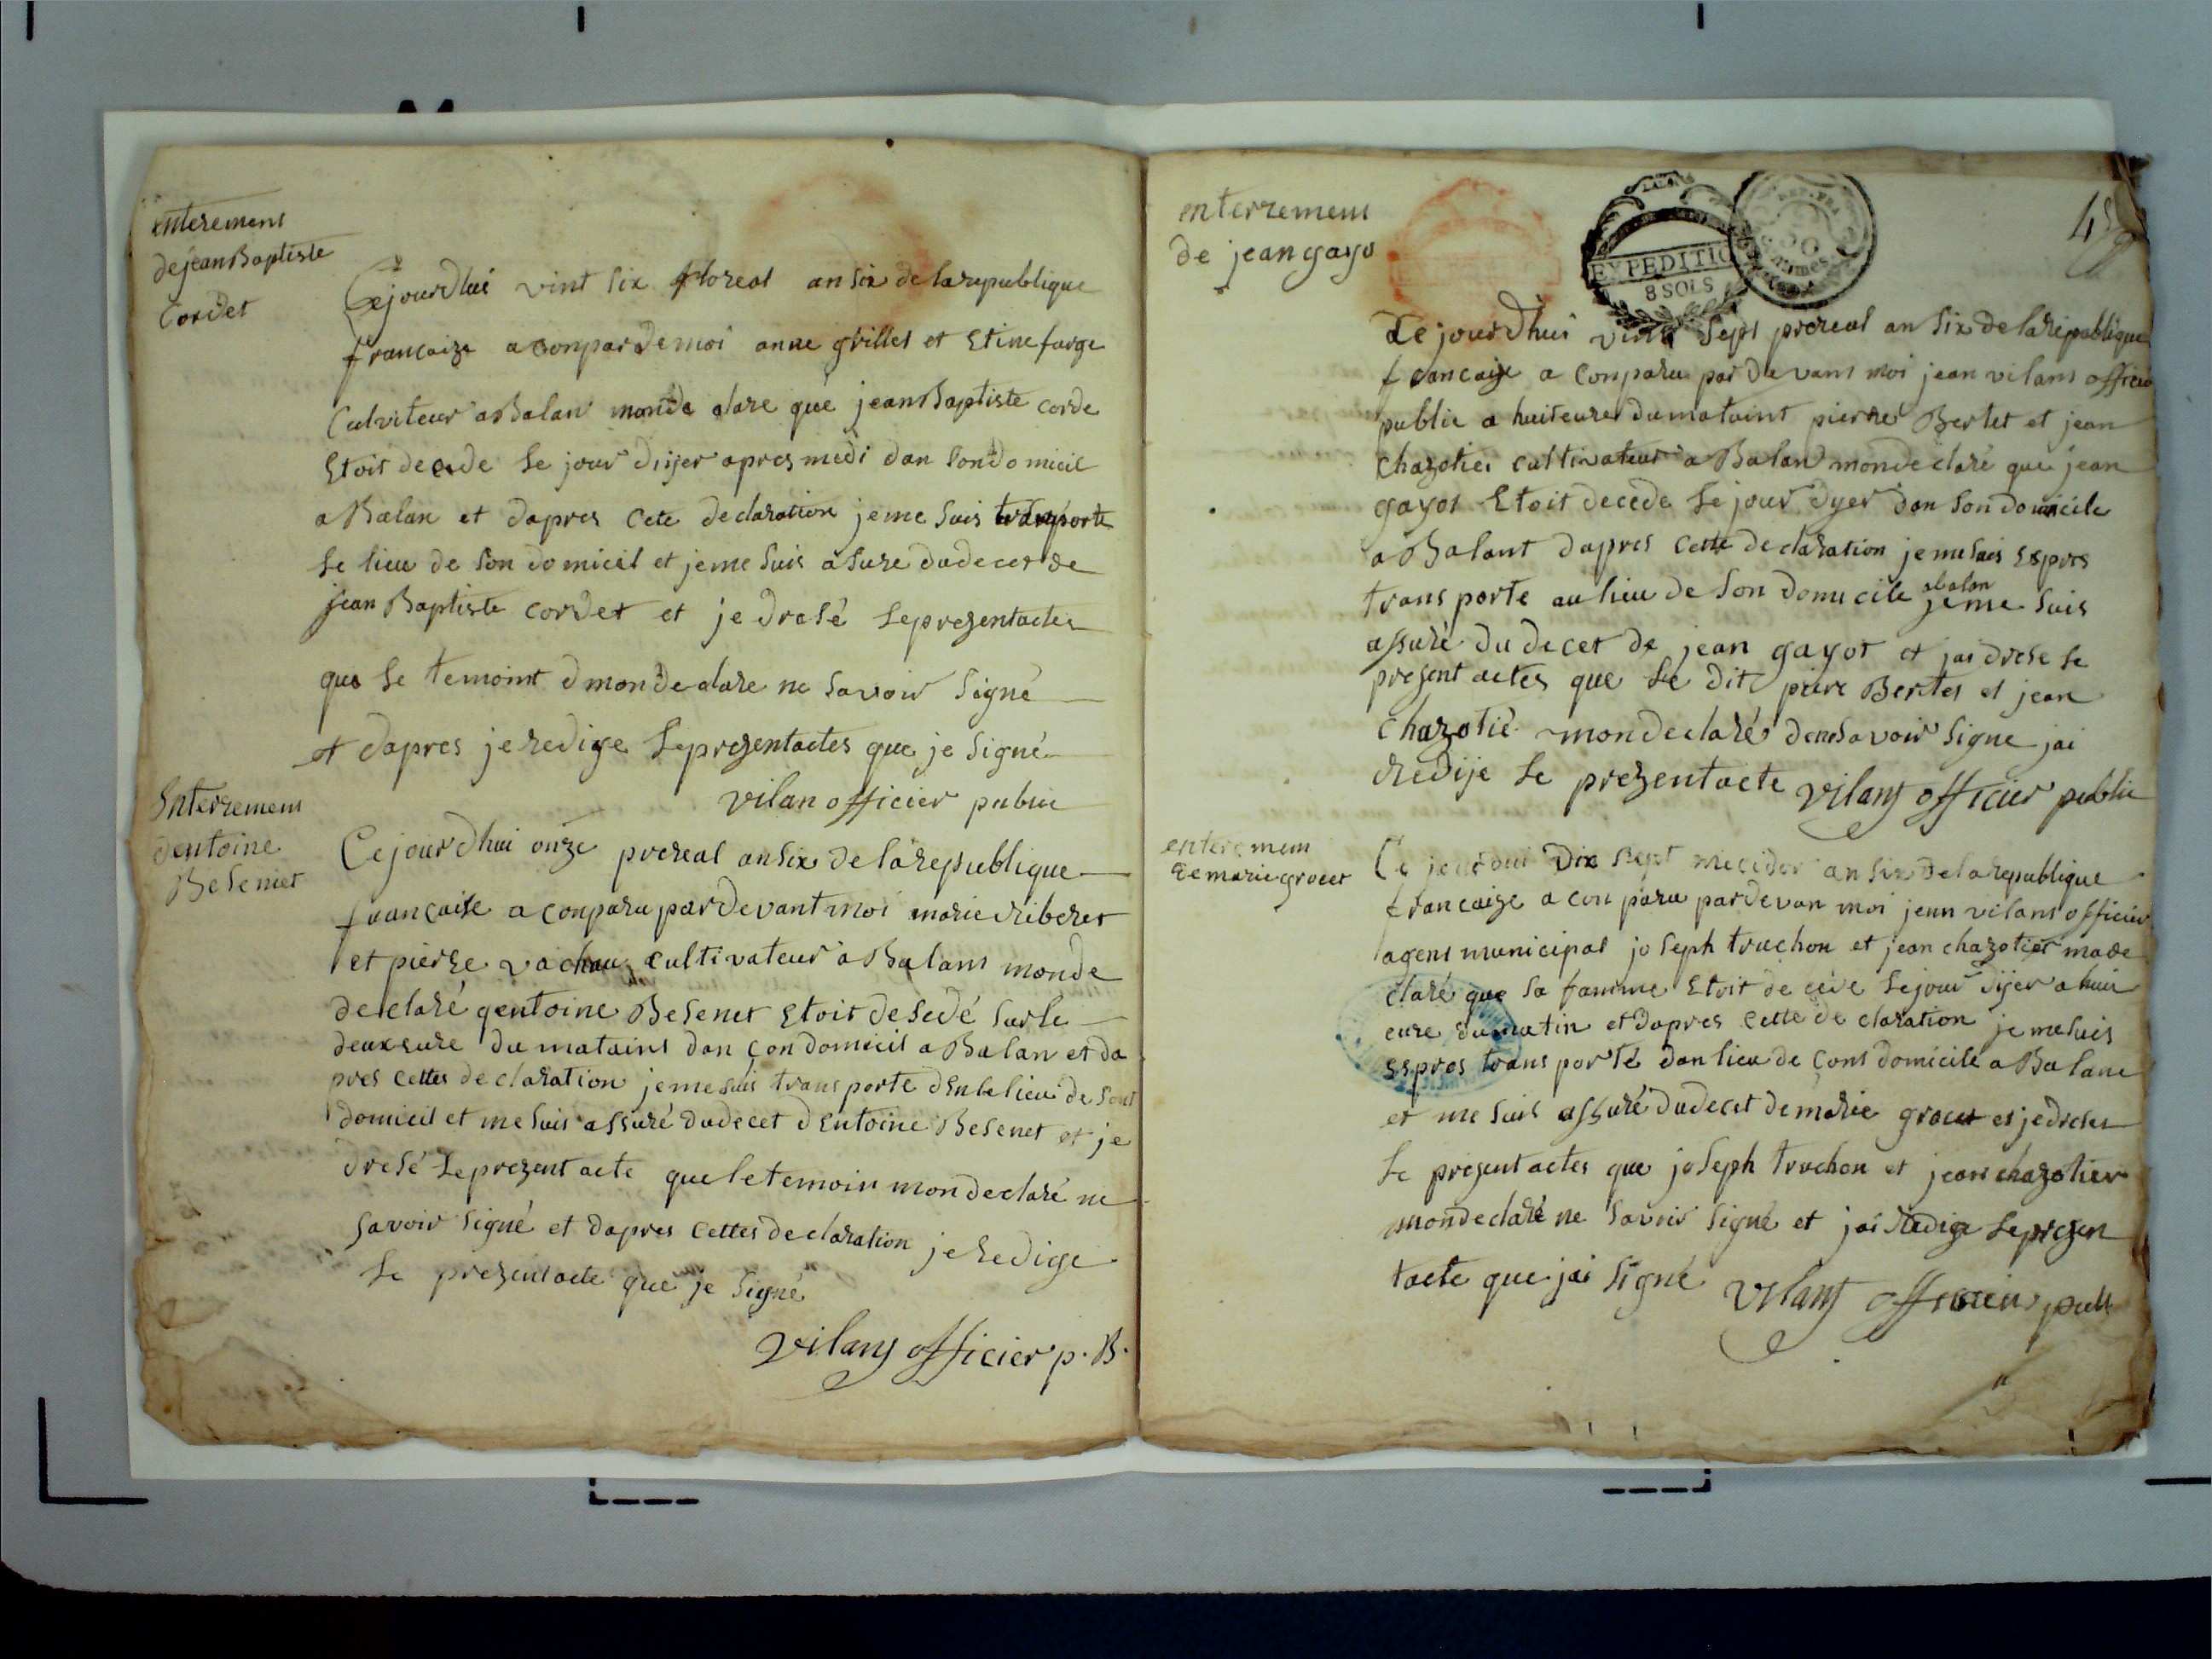 enterement
de jean Baptiste
Cordet
Ce jourdhui vint six floreal an six de la republique
francaize a conpardemoi anne grillet et Etine farge
Culviteur a Balan monde clare que jean Baptiste corde
Etoit decede le jour diyer apres medi dan son domicil
a Balan et dapres Cete declaration je me suis transporte
le lieu de son domicil et jeme suis asure dudecet de
jean Baptiste cordet et je dresé le prezentactes
que le temoint d monde clare ne savoir signé
et dapres je redige le prezentactes que je signé
vilan officier public
Enterrement
dentoine
Beseniet
Ce jourdhui onze prereal an six de la republique
francaise a conparu par devant moi marie riberet
et pierre vachau cultivateur a Balans monde
declaré qentoine Besenet Etoit desedé sur le
deuxsure du matains dan çon domicil a Balan et da
pres cettes declaration jeme suis transporte dEnle lieu de sont
domicil et me suis assuré dudecet dEntoine Besenet et je
dresé le prezent acte que le temoin mon declaré ne
savoir signé et dapres cettes declaration je redige
le prezentacte que je signé
vilans officier p. B.
enterrement
de jean gayo
EXPEDITIO
8 SOLS
Ce jourdhui vint sept prereal an six de la republique
francaize a conparu par devans moi jean vilans officie
public a huiteure dumataint pierre Bertet et jean
chazotier cultivateur a Balan mon declaré que jean
gayot Etoit decede le jour dyer dan son domicile
a Balant dapres cette declaration jemesuis Espres
transporte au lieu de son domicile
abalan
jeme suis
assuré du decet de jean gayot et jai drese le
present actes que le dit piere Bertet et jean
chazotié mondeclaré denesavoir signe jai
redije le prezentacte vilans officier public
enterement
de marie grocet
Ce jourdui Dix sept mecidor an six de la republique
francaize a conparu pardevan moi jean vilans officier
agent municipal joseph truchon et jean chazotier made
claré que sa famme Etoit decéde le jour dijer a huit
eure du matin et dapres cette declaration je mesuis
Espres transporté dan lieu de çons domicile a Balane
et me suis assuré dudecet de marie grocet et je dreses
le present actes que joseph truchon et jean chazotier
mondeclaré ne savoir signé et jai redige le prezen
tacte que jai signé vilans officier publ